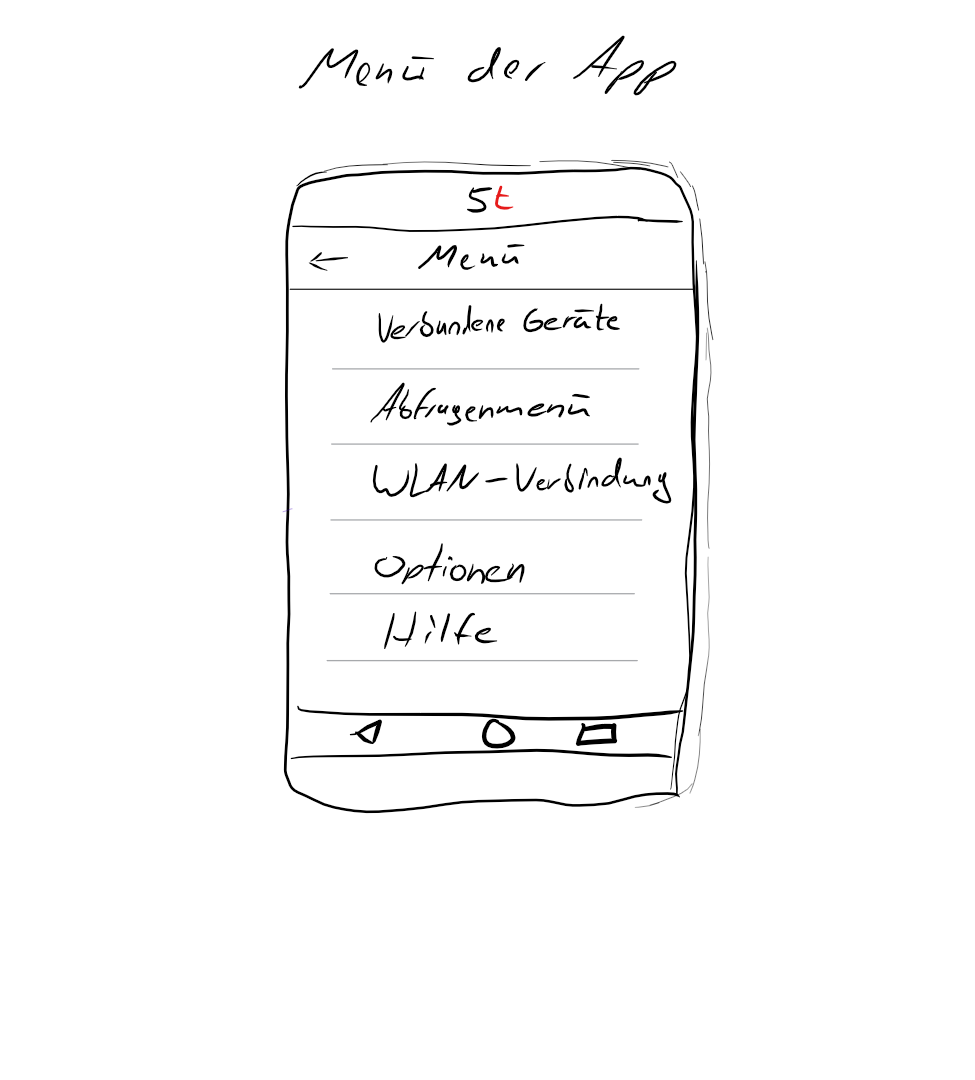 Menü der App
5t
← Menü
Verbundene Geräte
Abfragenmenü
WLAN-Verbindung
Optionen
Hilfe